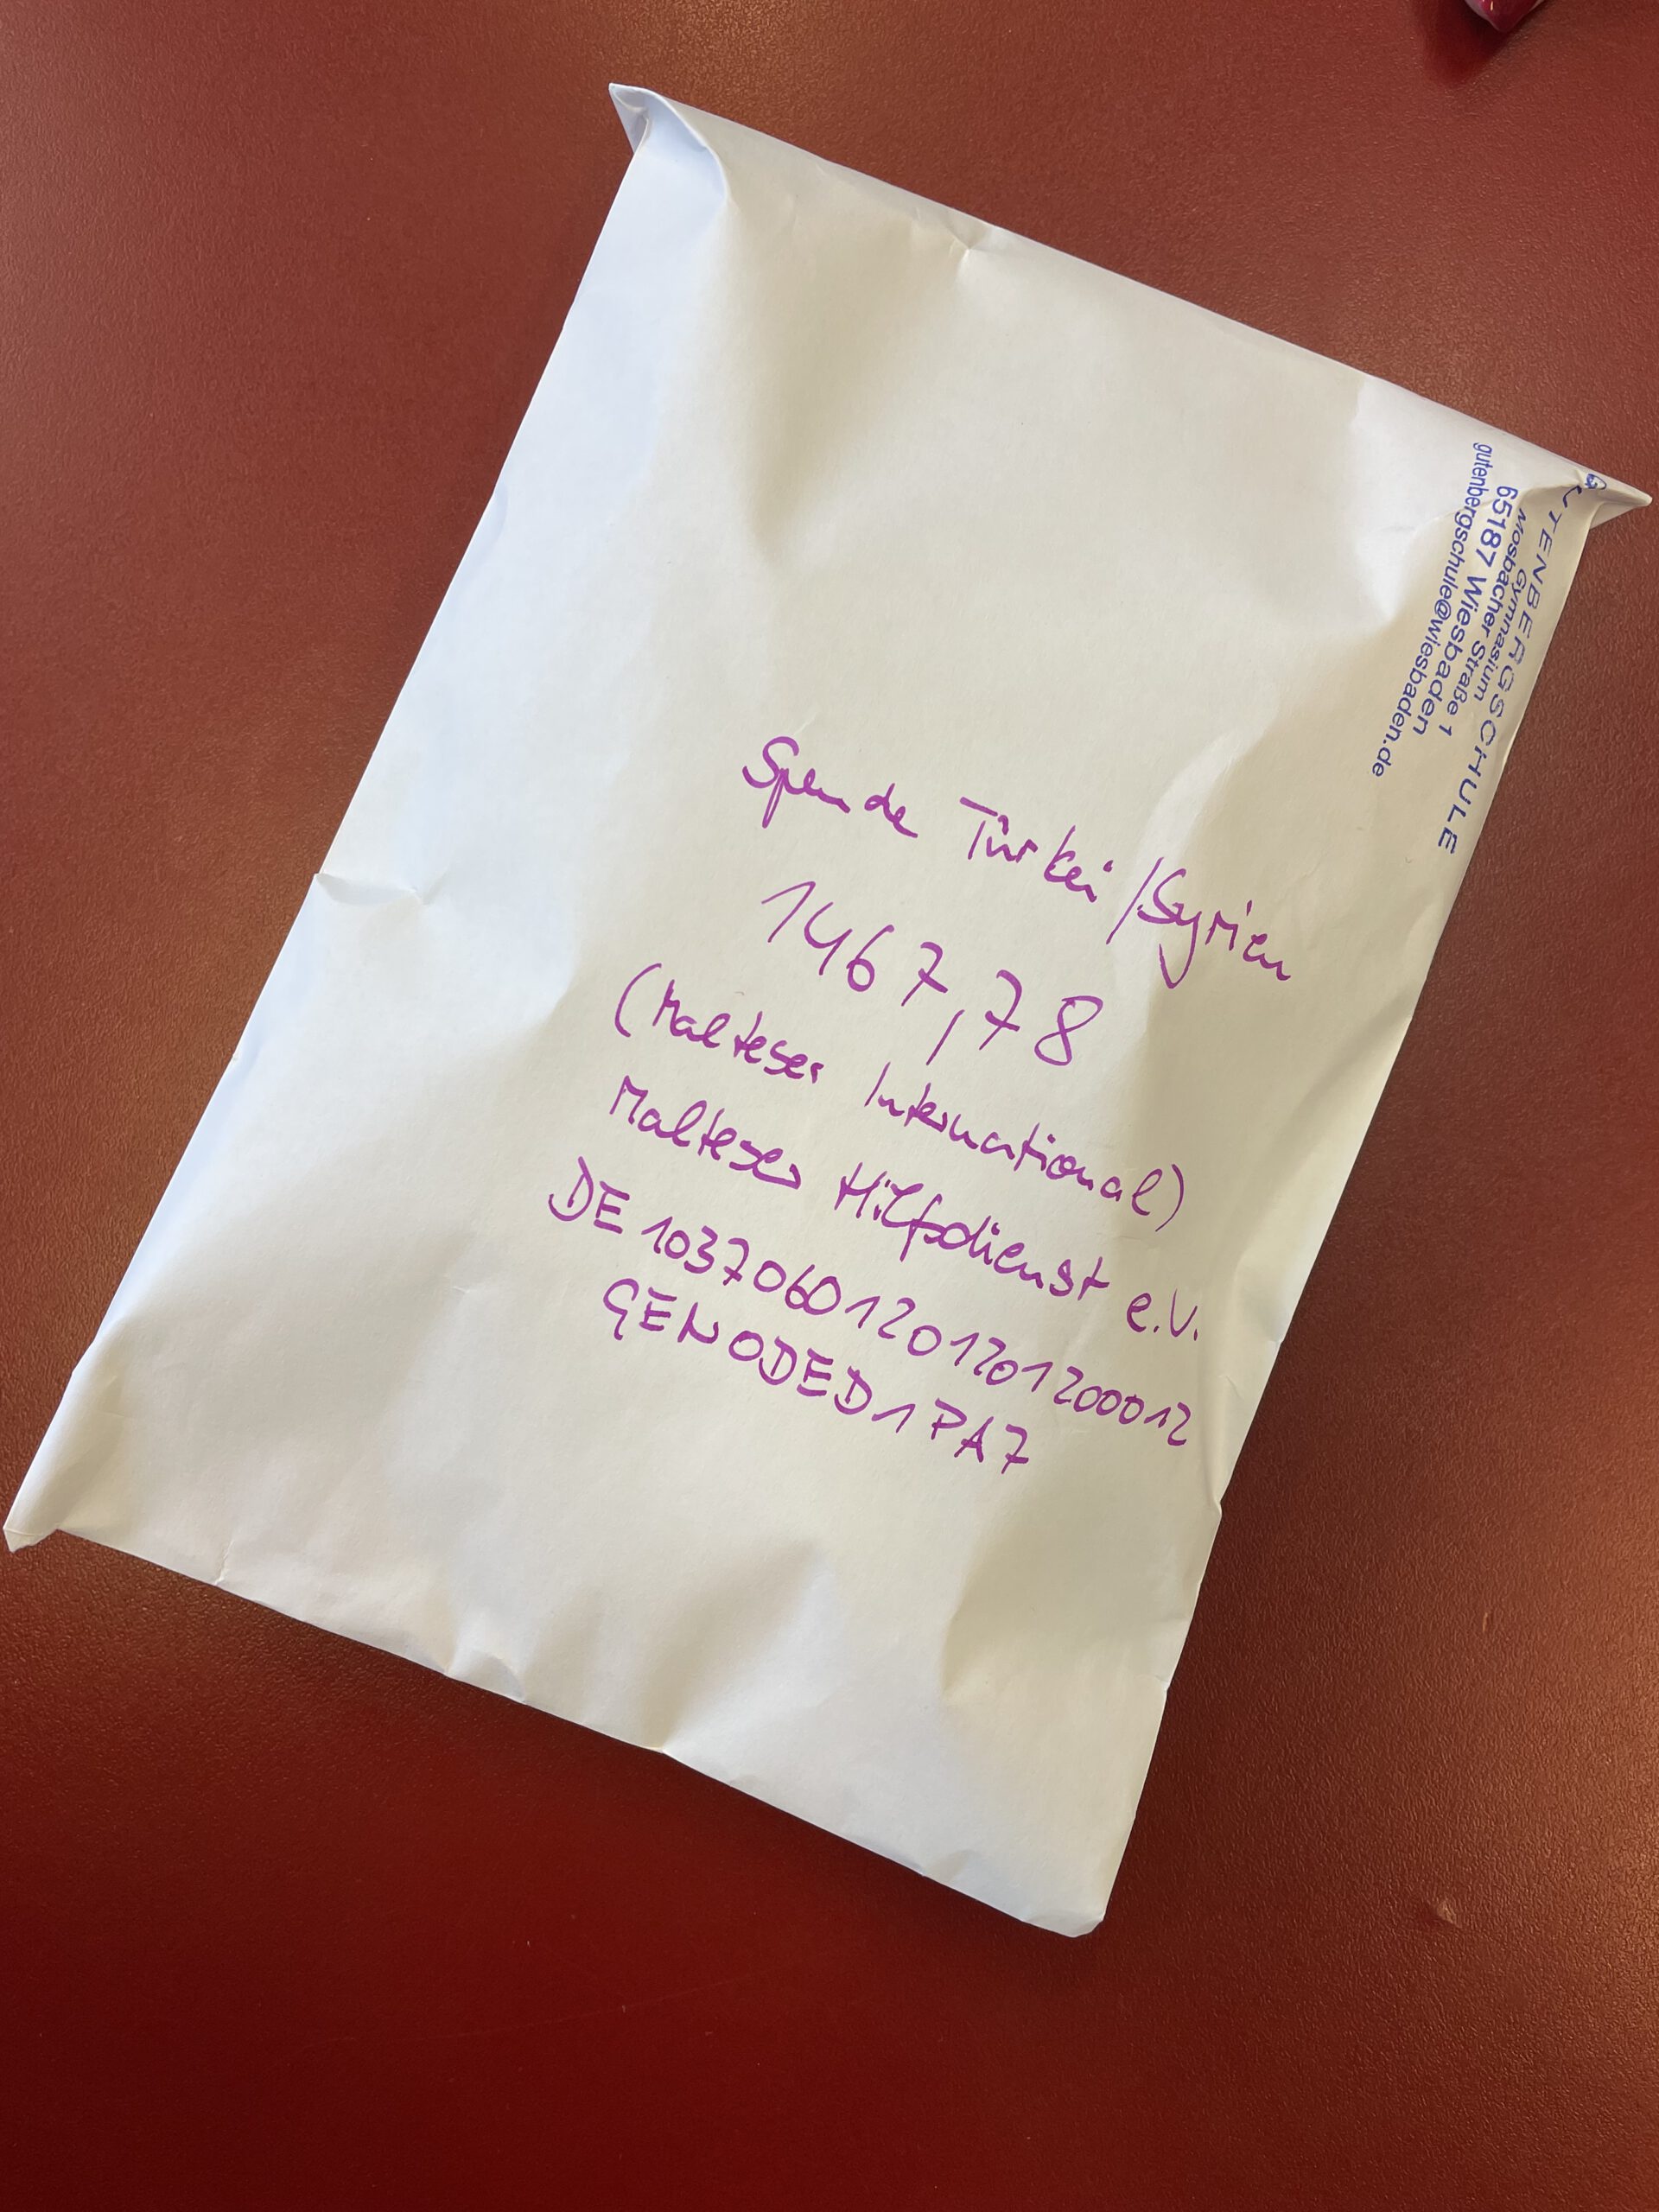 GUTENBERGSCHULE
Gymnasium
Mosbacher Straße 1
65187 Wiesbaden
gutenbergschule@wiesbaden.de
Spende Türkei/Syrien
1467,78
(Malteser International)
Malteser Hilfsdienst e.V.
DE10370601201201200012
GENODED1PA7